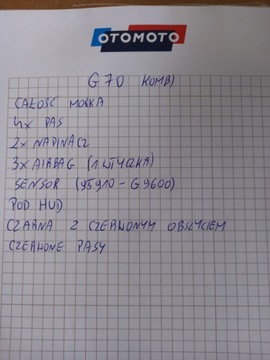 OTOMOTO
G70 KOMBI
CAŁOŚĆ MOKKA
4x PAS
2x NAPINACZ
3x AIRBAG (1 WTYCZKA)
SENSOR (95910-G9600)
POD HUD
CZARNA Z CZERWONYM OBSZYCIEM
CZERWONE PASY